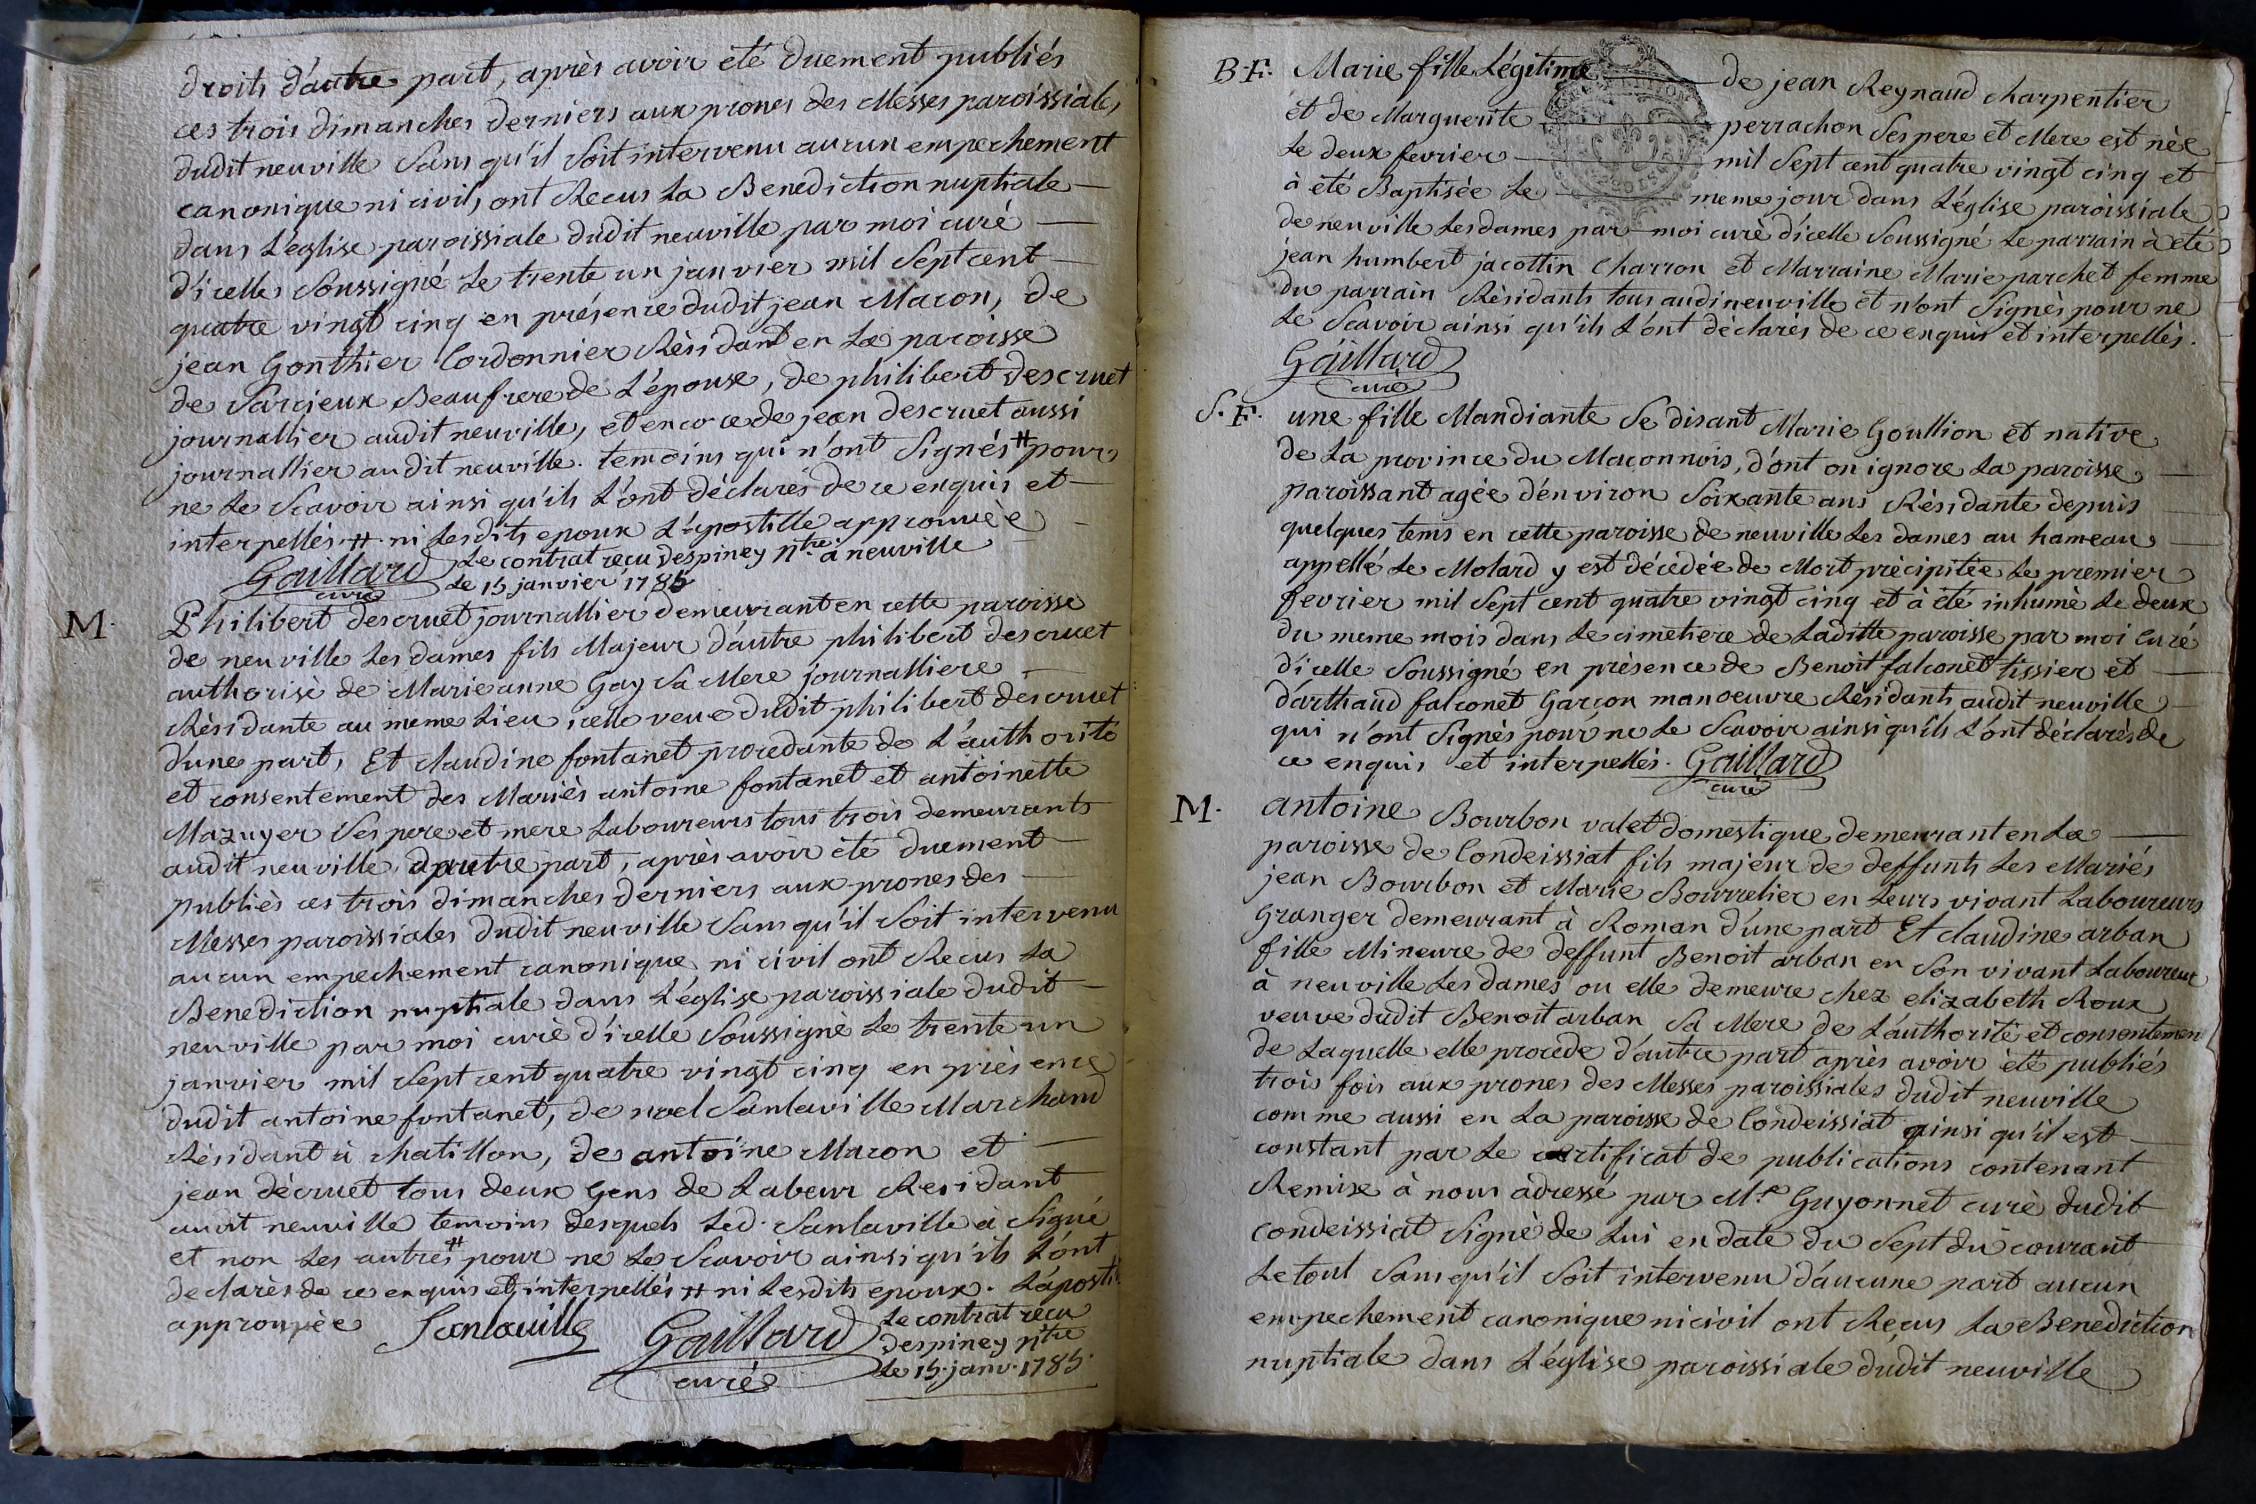 droits d'autre part, après avoir été duement publiés
ces trois dimanches derniers aux prones des Messes paroissiales
dudit neuville Sans qu'il Soit intervenu aucun empechement
canonique ni civil, ont Recus La Benediction nuptiale
dans L'église paroissiale dudit neuville par moi curé
d'icelle Soussigné Le trente un janvier mil Sept cent
quatre vingt cinq en présence dudit jean Macon, de
jean Gonthier Cordonnier Résidant en La paroisse
de Sarcieux Beaufrere de L'épouse, de philibert Descruet
journallier audit neuville, et encore de jean descruet aussi
journallier audit neuville. temoins qui n'ont Signés # pour
ne Le Scavoir ainsi qu'ils L'ont déclarés de ce enquis et
interpellés. # ni Lesdits epoux L'apostille approuvée
Gaillard curé
Le contrat recu Despiney Ntre à neuville
Le 15 janvier 1785
M. Philibert descruet journallier demeurant en cette paroisse
de neuville Les dames fils Majeur d'autre philibert descruet
authorisé de Marieanne Gay Sa Mere journalliere
Résidante au meme Lieu, icelle veuve dudit philibert descruet
d'une part, Et claudine fontanet procedante de L'authorité
et consentement des Mariés antoine fontanet et antoinette
Mazuyer Ses pere et mere Laboureurs tous trois demeurants
audit neuville d'autre part, après avoir été duement
publiés ces trois dimanches derniers aux prones des
Messes paroissiales dudit neuville Sans qu'il Soit intervenu
aucun empechement canonique ni civil ont Recus La
Benediction nuptiale dans L'église paroissiale dudit
neuville par moi curé d'icelle Soussigné Le trente un
janvier mil Sept cent quatre vingt cinq en présence
dudit antoine fontanet, de noel Sanlaville Marchand
Résidant à chatillon, de antoine Macon et
jean décruet tous deux Gens de Labeur Residant
audit neuville temoins desquels Led. Sanlaville à Signé
et non Les autres # pour ne Le Scavoir ainsi qu'ils L'ont
declarés de ce enquis et interpellés # ni Lesdits epoux. L'apostil.
approuvée Sanlaville Gaillard curé
Le contrat recu
Despiney Ntre
Le 15. janv. 1785.
B.F. Marie fille Légitime de jean Reynaud charpentier
et de Marguerite perrachon Ses pere et Mere est née
Le deux fevrier mil Sept cent quatre vingt cinq et
à été Baptisée Le meme jour dans L'église paroissiale
de neuville Les dames par moi curé d'icelle Soussigné Le parrain à été
jean humbert jacottin Charron et Marraine Marie parchet femme
du parrain Résidants tous audit neuville et n'ont Signés pour ne
Le Scavoir ainsi qu'ils L'ont déclarés de ce enquis et interpellés.
Gaillard
curé
S.F. une fille Mandiante Se disant Marie Goullion et native
de La province du Maconnois, d'ont on ignore La paroisse
paroissant agée d'environ Soixante ans Résidante depuis
quelques tems en cette paroisse de neuville Les dames au hameau
appellé Le Molard y est décédée de Mort précipitée Le premier
fevrier mil Sept cent quatre vingt cinq et à été inhumé Le deux
du meme mois dans Le cimetiere de Laditte paroisse par moi Curé
d'icelle Soussigné en présence de Benoit falconet tissier et
d'arthaud falconet Garçon manoeuvre Résidants audit neuville
qui n'ont Signés pour ne Le Scavoir ainsi qu'ils L'ont déclarés de
ce enquis et interpellés. Gaillard
curé
M. antoine Bourbon valet domestique demeurant en La
paroisse de Condeissiat fils majeur de deffunts Les Mariés
jean Bourbon et Marie Bourrelier en Leurs vivant Laboureurs
Granger demeurant à Roman d'une part Et claudine arban
fille Mineure de deffunt Benoit arban en Son vivant Laboureur
à neuville Les dames ou elle demeure chez elizabeth Roux
veuve dudit Benoit arban Sa Mere de L'authorité et consentemen
de Laquelle elle procede d'autre part après avoir été publiés
trois fois aux prones des Messes paroissiales dudit neuville
comme aussi en La paroisse de Condeissiat ainsi qu'il est
constant par Le certificat de publications contenant
Remise à nous adressé par Mre Guyonnet curé dudit
condeissiat Signé de Lui en date du Sept du courant
Le tout Sans qu'il Soit intervenu d'aucune part aucun
empechement canonique ni civil ont Reçus La Benediction
nuptiale dans L'église paroissiale dudit neuville